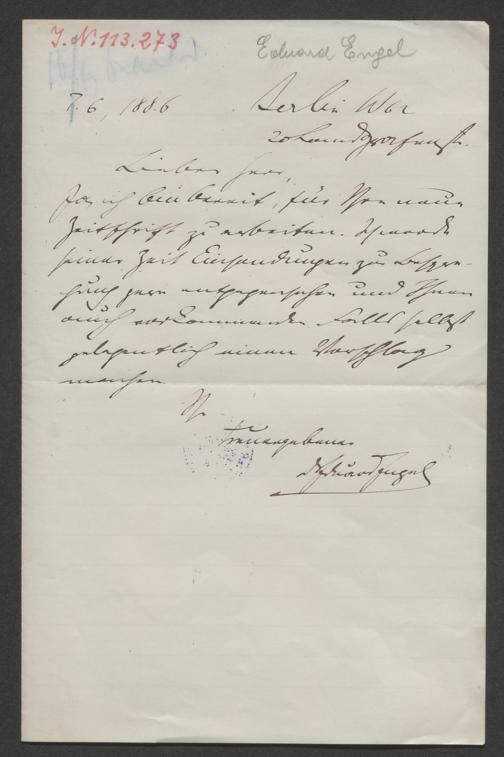 I. N. 113.273
Eduard Engel
7. 6, 1886 Berlin W
20 Landgrafenstr.
Lieber Herr,
Ja, ich bin bereit, für Ihre neue
Zeitschrift zu arbeiten. Ich werde
seiner Zeit Einsendungen zur Bespre-
chung gern entgegensehen und Ihnen
auch vorkommenden Falls selbst
gelegentlich einen Vorschlag
machen.
Ihr
treuergebener
Dr Eduard Engel